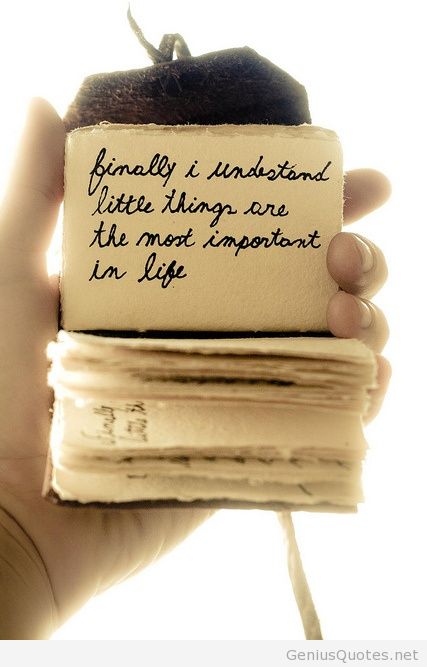 finally i undestand
little things are
the most important
in life
finally
little th
GeniusQuotes.net